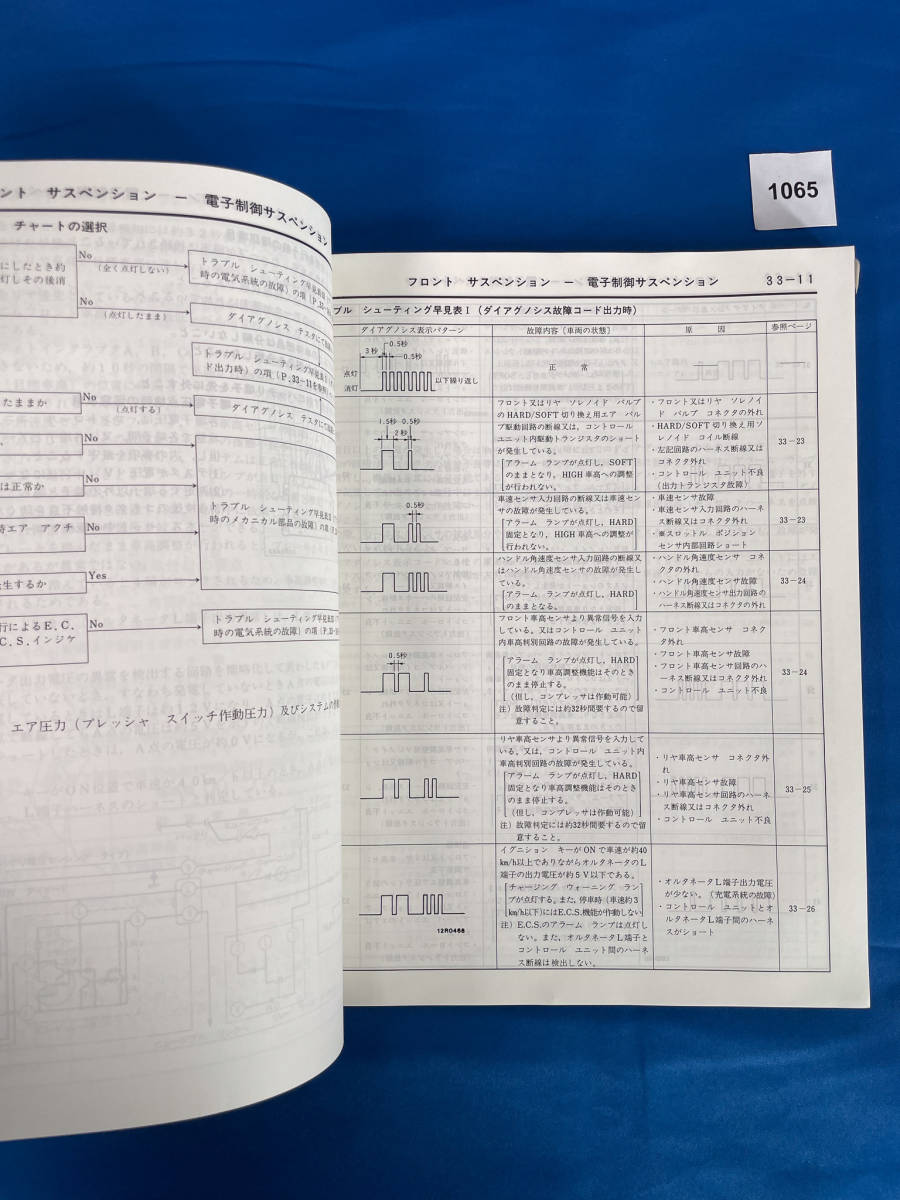 1065
ント サスペンション － 電子制御サスペンション
チャートの選択
にしたとき約
灯しその後消
No
(全く点灯しない)
トラブル シューティング早見表
時の電気系統の故障)の項(P.33-
No
(点灯したまま)
ダイアグノシス テスタにて
トラブル シューティング早見表
ド出力時)の項(P.33-11を参照)
たままか
No
(点灯する)
ダイアグノシス テスタにて
No
は正常か
No
トラブル シューティング早見表
時のメカニカル部品の故障)の項
時エア アクチ
No
生するか
Yes
行によるE.C.
C.S.インジケ
No
トラブル シューティング早見表
時の電気系統の故障)の項(P.33-
エア圧力(プレッシャ スイッチ作動圧力)及びシステムの
フロント サスペンション － 電子制御サスペンション 33-11
ブル シューティング早見表Ⅰ(ダイアグノシス故障コード出力時)
ダイアグノシス表示パターン
故障内容[車両の状態]
原 因
参照ページ
0.5秒
3秒
0.5秒
点灯
消灯
以下繰り返し
正 常
1.5秒 0.5秒
2秒
フロント又はリヤ ソレノイド バルブ
のHARD/SOFT切り換え用エア バル
ブ駆動回路の断線又は、コントロール
ユニット内駆動トランジスタのショート
が発生している。
[アラーム ランプが点灯し、SOFT
のままとなり、HIGH車高への調整
が行われない。]
・フロント又はリヤ ソレノイ
ド バルブ コネクタの外れ
・HARD/SOFT切り換え用ソ
レノイド コイル断線
・左記回路のハーネス断線又は
コネクタ外れ
・コントロール ユニット不良
(出力トランジスタ故障)
33-23
0.5秒
車速センサ入力回路の断線又は車速セン
サの故障が発生している。
[アラーム ランプが点灯し、HARD
固定となり、HIGH車高への調整が
行われない。]
・車速センサ故障
・車速センサ入力回路のハーネ
ス断線又はコネクタ外れ
・※スロットル ポジション
センサ内部回路ショート
33-23
ハンドル角速度センサ入力回路の断線又
はハンドル角速度センサの故障が発生し
ている。
[アラーム ランプが点灯し、HARD
のままとなる。]
・ハンドル角速度センサ コネ
クタの外れ
・ハンドル角速度センサ故障
・ハンドル角速度センサ出力回路の
ハーネス断線又はコネクタの外れ
33-24
0.5秒
フロント車高センサより異常信号を入力
している。又はコントロール ユニット
内車高判別回路の故障が発生している。
[アラーム ランプが点灯し、HARD
固定となり車高調整機能はそのとき
のまま停止する。
(但し、コンプレッサは作動可能)]
注)故障判定には約32秒間要するので留
意すること。
・フロント車高センサ コネク
タ外れ
・フロント車高センサ故障
・フロント車高センサ回路のハ
ーネス断線又はコネクタ外れ
・コントロール ユニット不良
33-24
リヤ車高センサより異常信号を入力して
いる。又は、コントロール ユニット内
車高判別回路の故障が発生している。
[アラーム ランプが点灯し、HARD
固定となり車高調整機能はそのとき
のまま停止する。
(但し、コンプレッサは作動可能)]
注)故障判定には約32秒間要するので留
意すること。
・リヤ車高センサ コネクタ外
れ
・リヤ車高センサ故障
・リヤ車高センサ回路のハーネ
ス断線又はコネクタ外れ
・コントロール ユニット不良
33-25
イグニション キーがONで車速が約40
km/h以上でありながらオルタネータのL
端子の出力電圧が約5V以下である。
[チャージング ウォーニング ラン
プが点灯する。また、停車時(車速約3
km/h以下)にはE.C.S.機能が作動しない]
注)E.C.S.のアラーム ランプは点灯し
ない。また、オルタネータL端子と
コントロール ユニット間のハーネ
ス断線は検出しない。
・オルタネータL端子出力電圧
が少ない。(充電系統の故障)
・コントロール ユニットとオ
ルタネータL端子間のハーネ
スがショート
33-26
12R0468